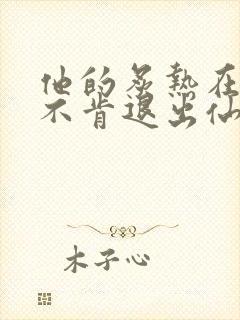 他的炙热在
不肯退出仙
木子心